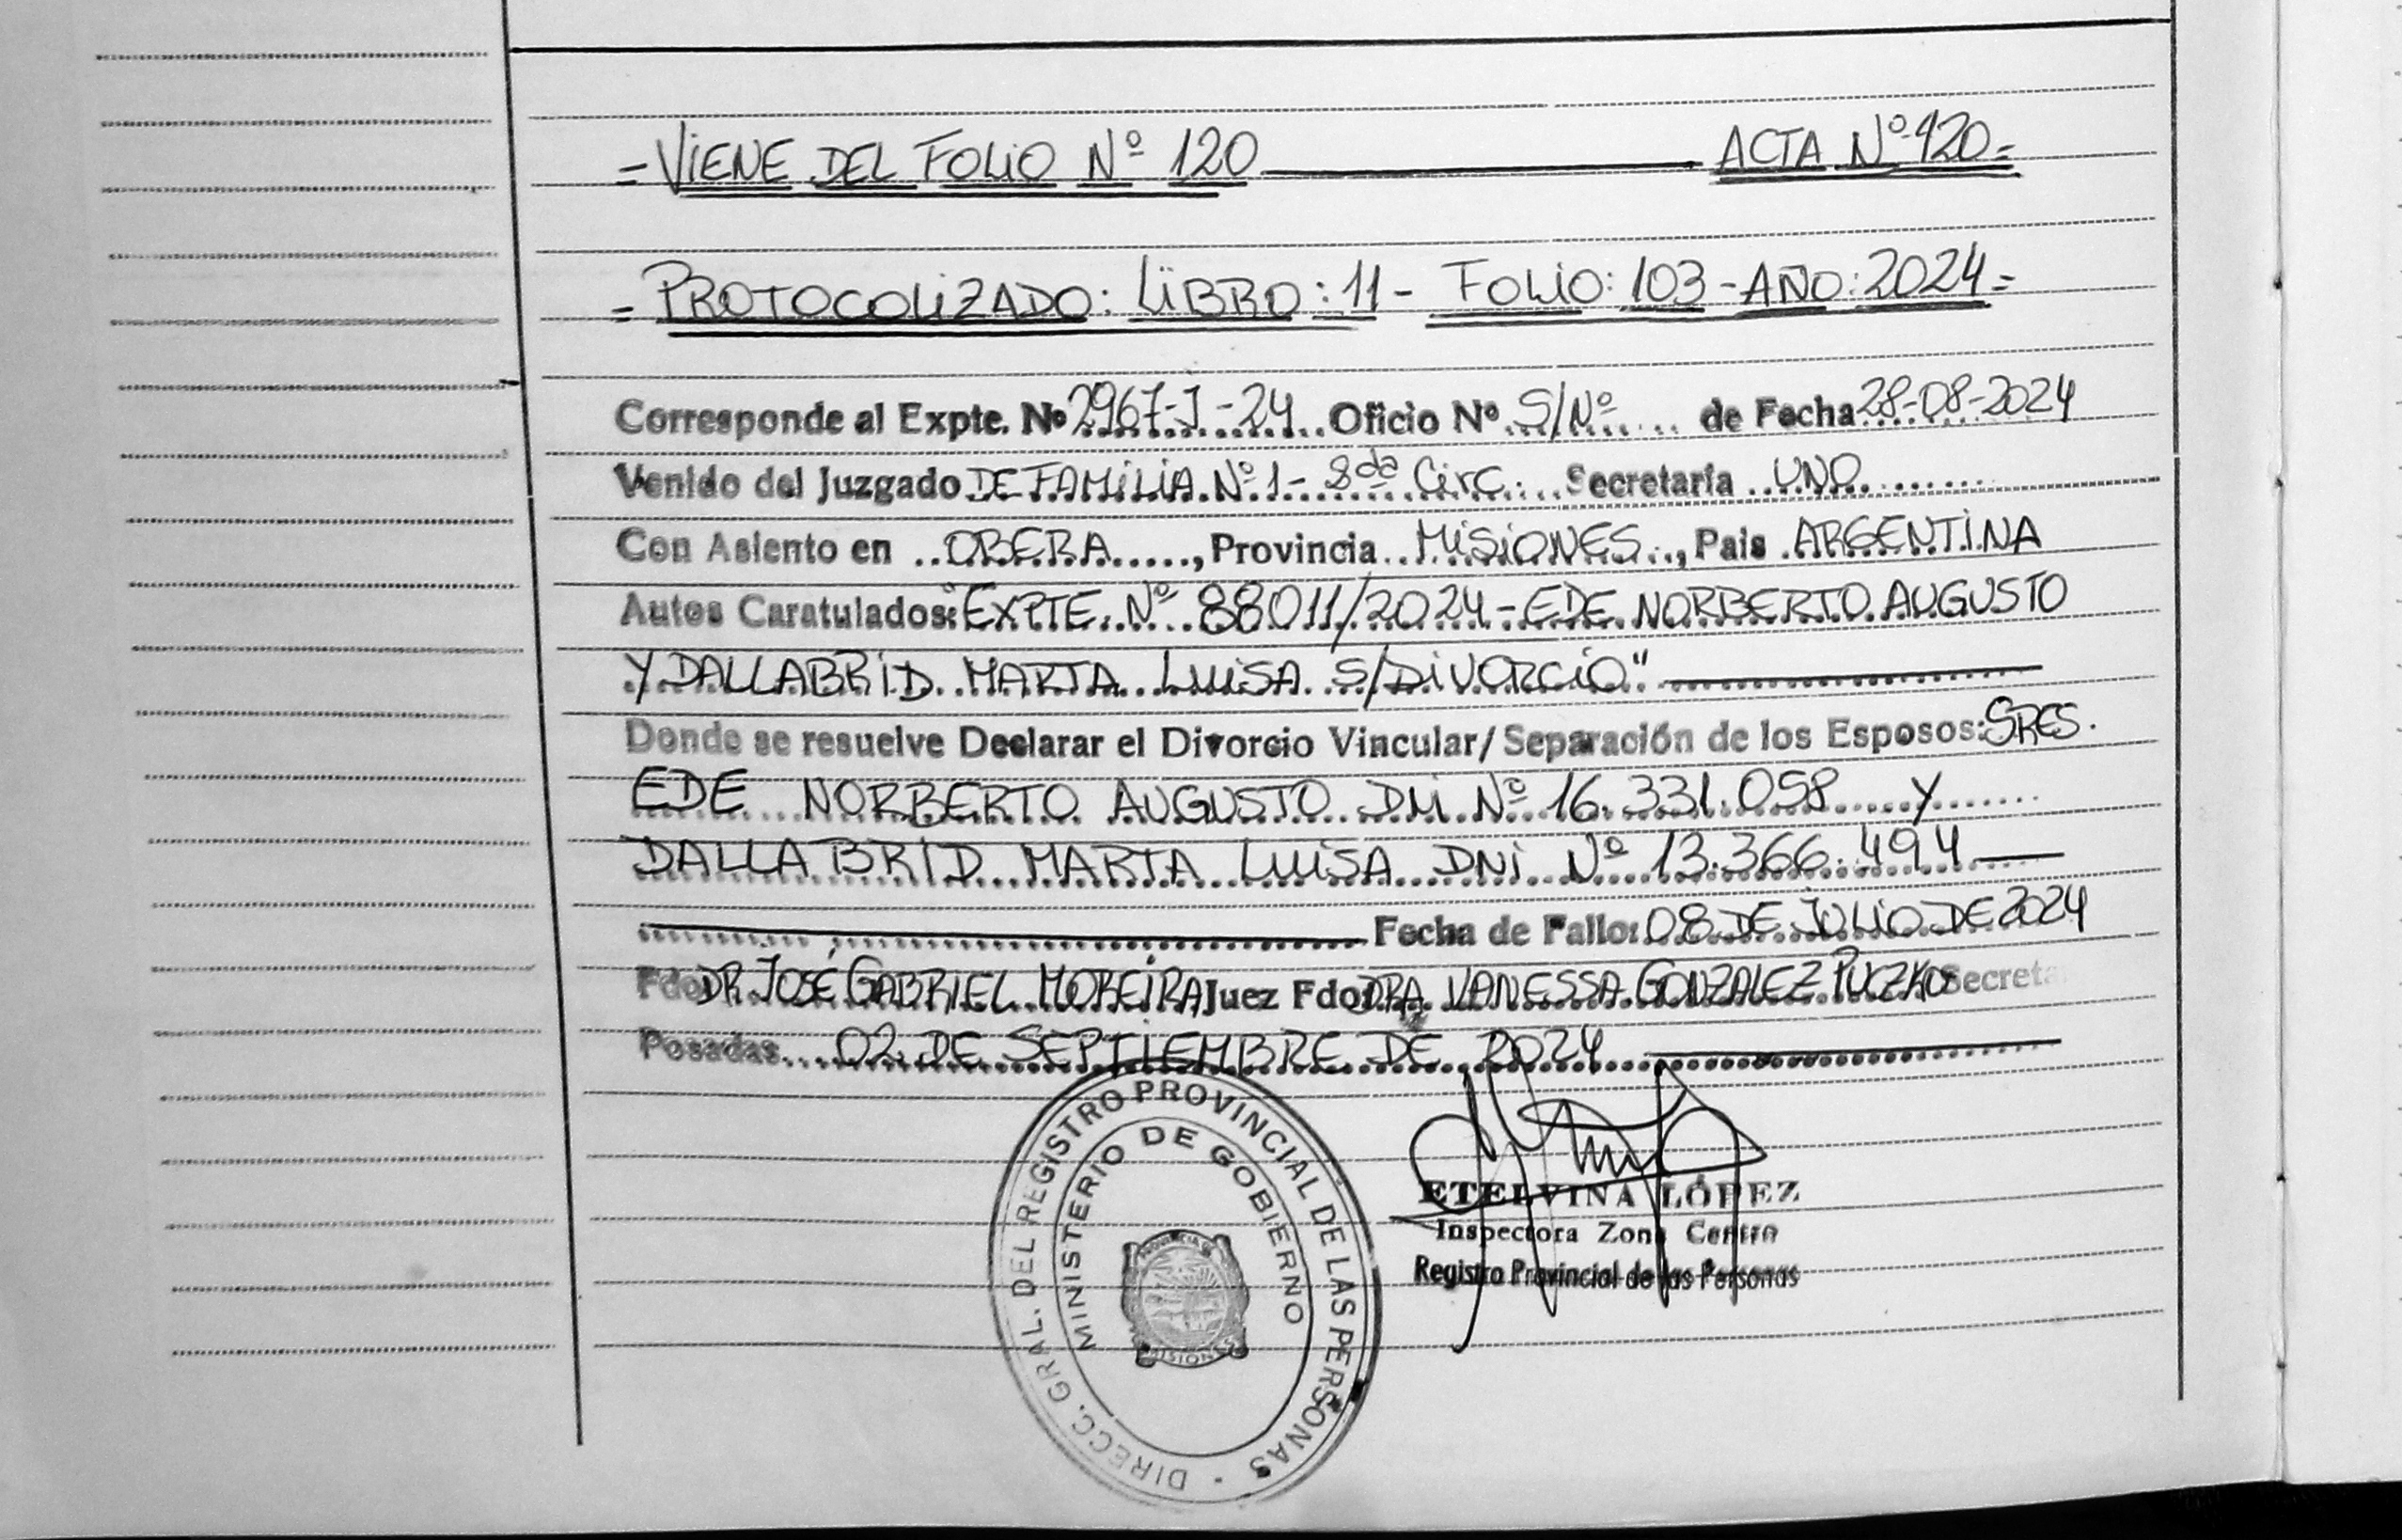 = VIENE DEL FOLIO Nº 120 ACTA Nº 120=
= PROTOCOLIZADO: LIBRO: 11 - FOLIO: 103 - AÑO: 2024=
Corresponde al Expte. Nº 2967-J-24 Oficio Nº S/Nº de Fecha 28-08-2024
Venido del Juzgado DE FAMILIA Nº 1 - 2da Circ. Secretaría UNO
Con Asiento en OBERA, Provincia MISIONES, Pais ARGENTINA
Autos Caratulados: "EXPTE. Nº 88011/2024 - EDE NORBERTO AUGUSTO
Y DALLABRID MARTA LUISA S/DIVORCIO"
Donde se resuelve Declarar el Divorcio Vincular/Separación de los Esposos: SRES.
EDE NORBERTO AUGUSTO DNI Nº 16.331.058 Y
DALLABRID MARTA LUISA DNI Nº 13.366.494
Fecha de Fallo: 08 DE JULIO DE 2024
Fdo DR. JOSÉ GABRIEL MOREIRA Juez Fdo: DRA. VANESSA GONZALEZ Secreta
Posadas 02 DE SEPTIEMBRE DE 2024
DIRECC. GRAL. DEL REGISTRO PROVINCIAL DE LAS PERSONAS
MINISTERIO DE GOBIERNO
PROVINCIA DE
MISIONES
ETELVINA LÓPEZ
Inspectora Zona Centro
Registro Provincial de las Personas